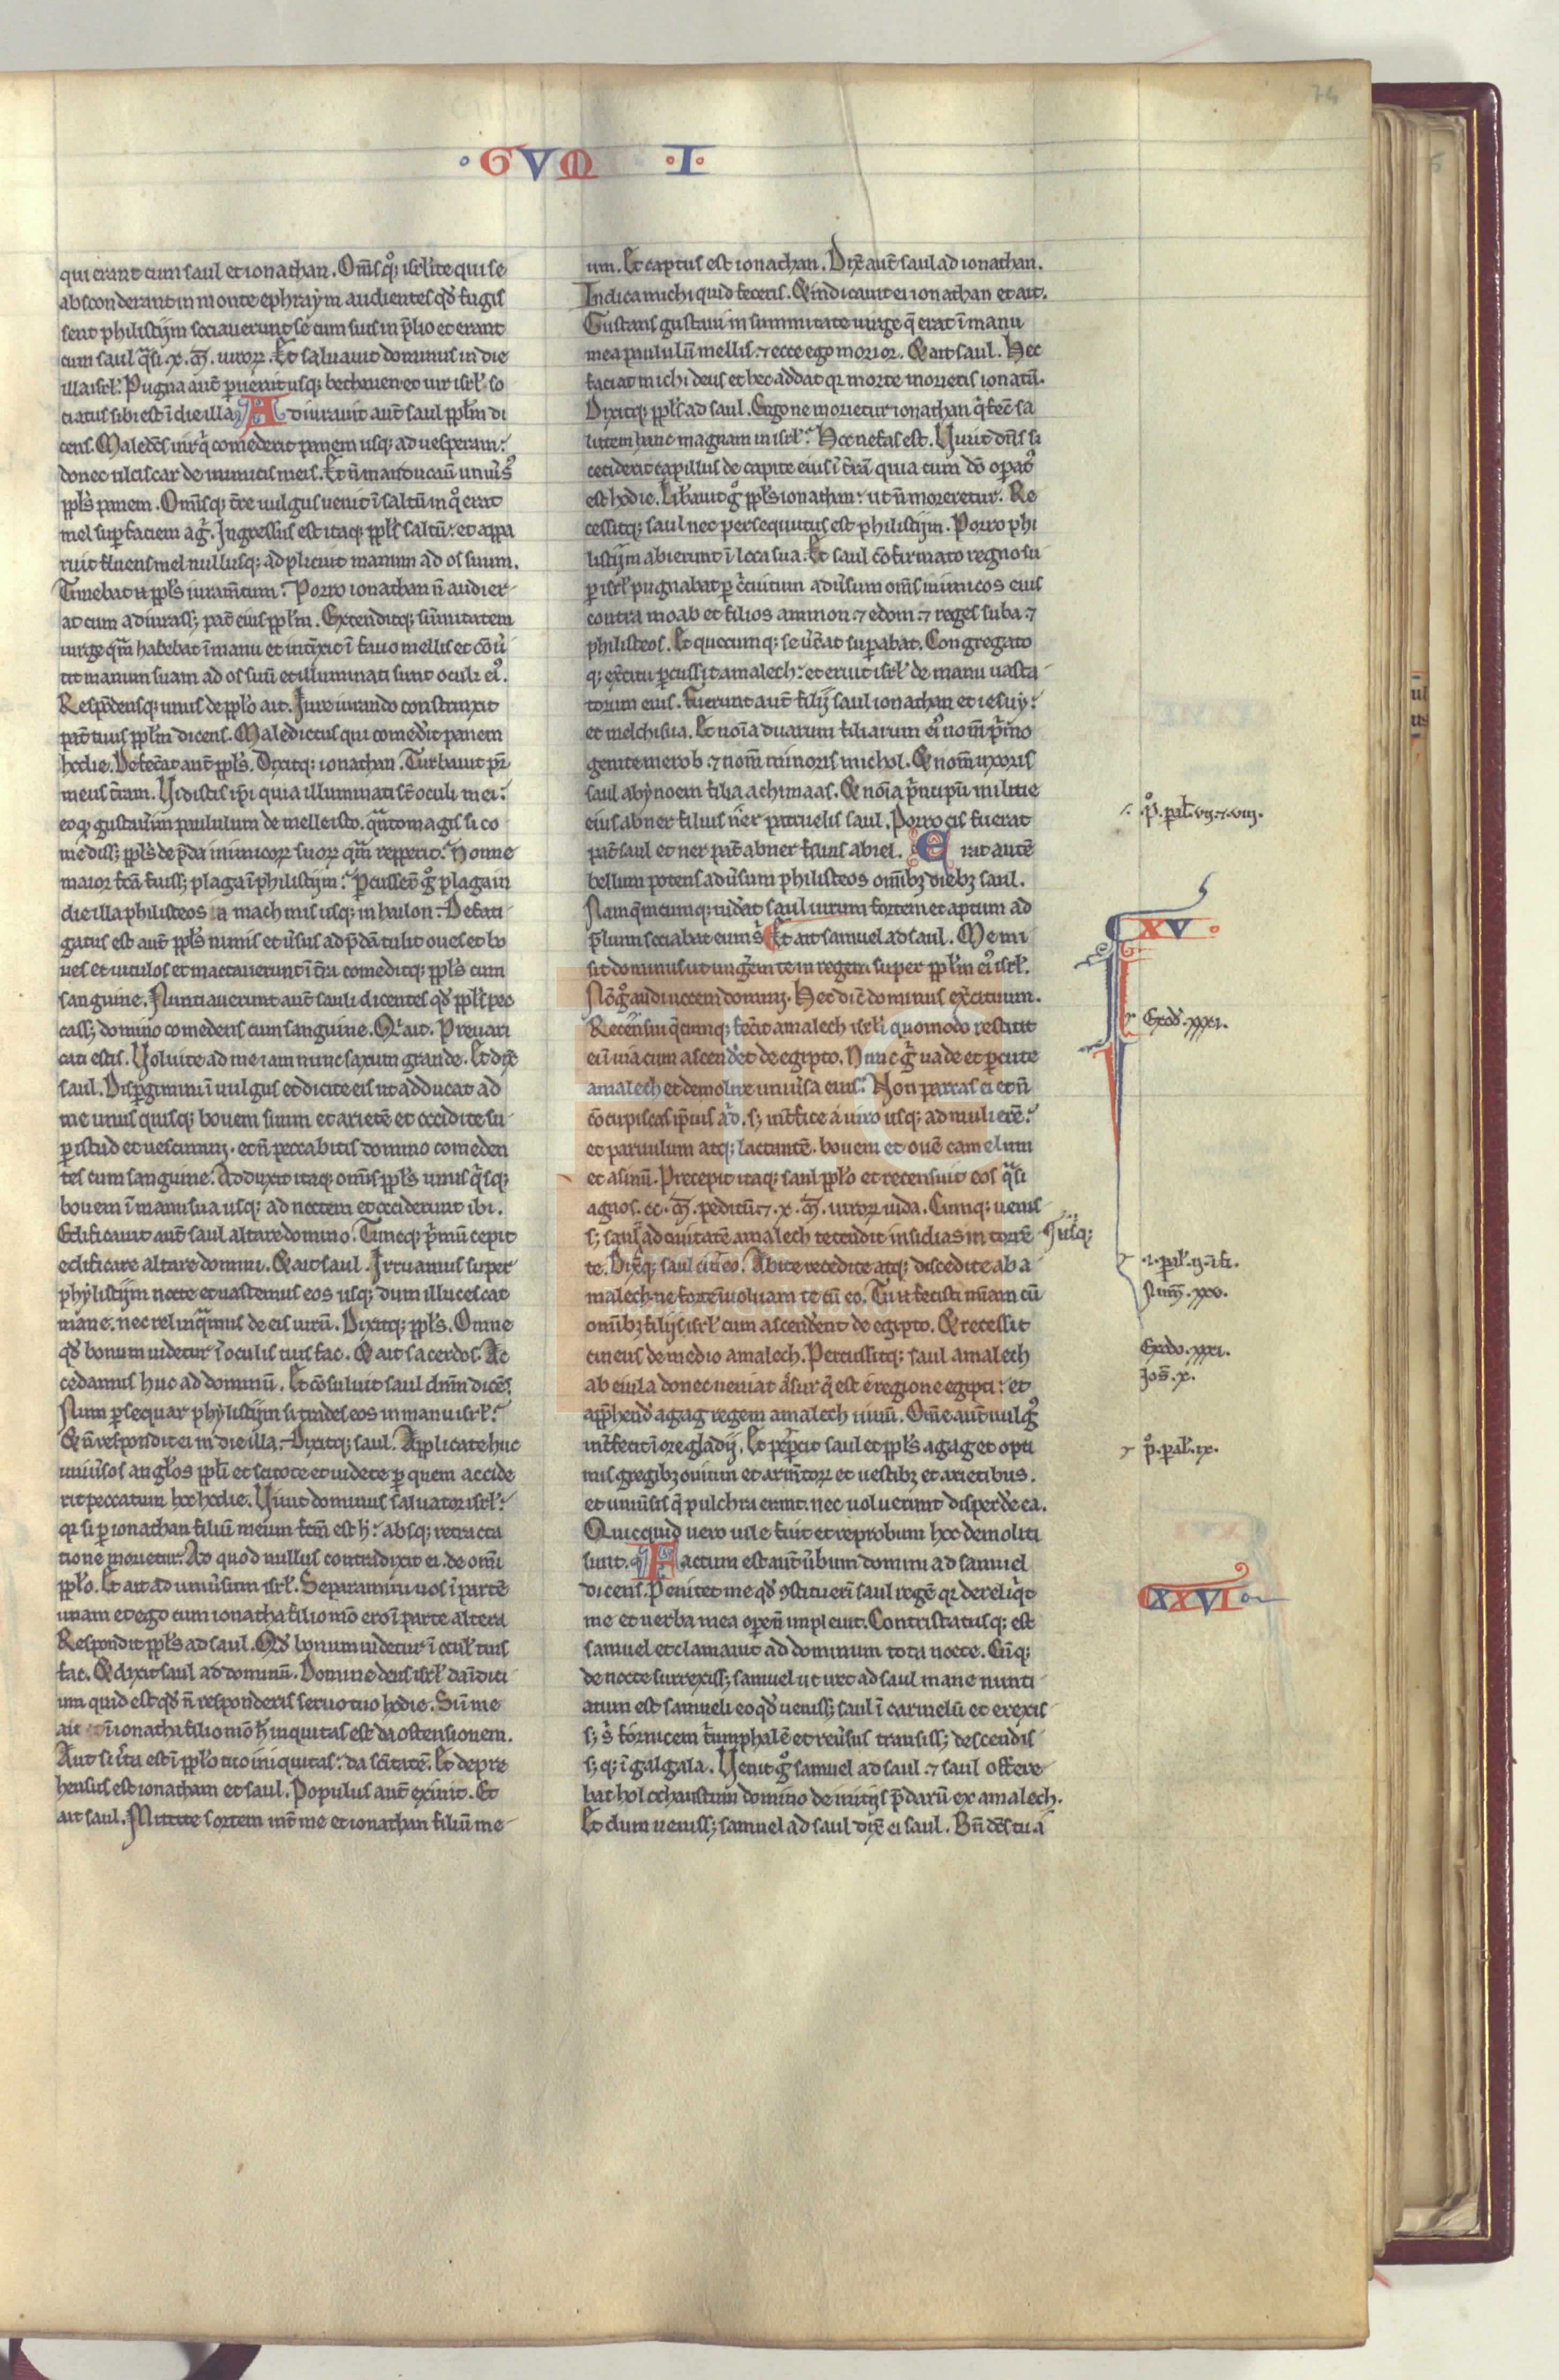 74
·GVM ·I·
qui erant cum saul et ionathan. Om̅s q̊ꝫ isrl̓ite qui se
absconderant in monte ephraym audientes qd̓ fugis
sent philistijm sociauerunt se cum suis in p̅lio et erant
cum saul q̓si .x. m̅. uiroꝝ. Et saluauit dominus in die
illa isrl̓. Pugna aut̅ ꝑuenit usqꝫ bethauen et uir isrl̓ so
ciatus sibi est i̅ die illa. Adiurauit aut̅ saul ppl̓m di
cens. Maledc̅s uir q̓ comederit panem usqꝫ ad uesperam:
donec ulciscar de inimicis meis. Et n̅ manducau̅ uniu̓s᷒
ppl̓s panem. Omnisqꝫ t̓re uulgus uenit i̅ saltu̅ in q̊ erat
mel suꝑ faciem ag̓. Ingressus est itaqꝫ ppl̓s saltu̅: et appa
ruit fluens mel nullusqꝫ adplicuit manum ad os suum.
Timebat n̅ ppl̓s iuram̅tum. Porro ionathan n̅ audier
at cum adiurassꝫ pat̓ eius ppl̓m. Extenditqꝫ su̅mitatem
uirge qua̅ habebat i̅ manu et intixit i̅ fauo mellis et co̅u̓
tit manum suam ad os suu̅ et illuminati sunt oculi ei᷒.
Respo̅densqꝫ unus de ppl̓o ait. Iure iurando constrinxit
pat̓ tuus ppl̓m dicens. Maledictus qui comed̓it panem
hodie. Defec̓at aut̅ ppl̓s. Dixitqꝫ ionathan. Turbauit pr̅
meus t̓ram. Uidistis ip̅i quia illuminati st̅ oculi mei:
eoqꝫ gustau̓im paululum de melle isto. qua̅to magis si co
medissꝫ ppl̓s de p̅da inimicoꝝ suoꝝ qua̅ repperit. Nonne
maior fc̅a fuissꝫ plaga i̅ philistijm: Ꝑcusser̅t g̊ plaga in
die illa philisteos a machmis usqꝫ in hailon. Defati
gatus est aut̅ ppl̓s nimis et u̓sus ad p̅da̅ tulit oues et bo
ues et uiculos et mactauerunt i̅ t̓ra comeditqꝫ ppl̓s cum
sanguine. Nuntiauerunt aut̅ sauli dicentes qd̓ ppl̓s pec
cassꝫ domino comedens cum sanguine. Q̓ ait. Preuari
cati estis. Uoluite ad me iam nunc saxum grande. Et dix̅
saul. Disꝑgimini i̅ uulgus et dicite eis ut adducat ad
me unus quisqꝫ bouem suum et ariete̅ et occidite su
ꝑ istud et uescimini. et n̅ peccabitis domino comeden
tes cum sanguine. Adduxit itaqꝫ omnis ppl̓s unus q̓sqꝫ
bouem i̅ manu sua usqꝫ ad noctem et occiderunt ibi.
Edificauit aut̅ saul altare domino. Tuncqꝫ p̓mu̅ cepit
edificare altare domini. Et ait saul. Irruamus super
phylistijm nocte et uastemus eos usqꝫ dum illucescat
mane. nec relinqua̅mus de eis uiru̅. Dixitqꝫ ppl̓s. Omne
qd̓ bonum uidetur i̅ oculis tuis fac. Et ait sacerdos. Ac
cedamus huc ad dominu̅. Et co̅suluit saul dn̅m dice̅s.
Num ꝑsequar phylistijm si trades eos in manu isrl̓:
Et n̅ respondit ei in die illa. Dixitqꝫ saul. Applicate huc
uniu̓sos anglo̓s ppl̓i et scitote et uidete ꝑ quem accide
rit peccatum hoc hodie. Uiuit dominus saluator isrl̓:
qꝛ si ꝑ ionathan filiu̅ meum fc̅m est h̓: absqꝫ retracta
tione morietur. Ad quod nullus contradixit ei de omni
ppl̓o. Et ait ad uniu̓sum isrl̓. Separamini uos i̅ parte̅
unam et ego cum ionatha filio m̅o ero i̅ parte altera
Respondit ppl̓s ad saul. Qd̓ bonum uidetur i̅ ocul̓ tuis
fac. Et dixit saul ad dominu̅. Domine deus isrl̓ da iudici
um quid est qd̓ n̅ responderis seruo tuo hodie. Si i̅ me
aut i̅ ionatha filio m̅o h̓ iniquitas est da ostensionem.
Aut si u̓ta est i̅ ppl̓o tuo iniquitas: da sc̅itate̅. Et depre
hensus est ionatham et saul. Populus aut̅ exiuit. Et
ait saul. Mittite sortem int̓ me et ionathan filiu̅ me
um. Et captus est ionathan. Dix̅ aut̅ saul ad ionathan.
Indica michi quid feceris. Et indicauit ei ionathan et ait.
Gustans gustaui in summitate uirge q̅ erat i̅ manu
mea paululu̅ mellis. ⁊ ecce ego morior. Et ait saul. Hec
faciat michi deus et hec addat qꝛ morte morieris ionata̅.
Dixitqꝫ ppl̓s ad saul. Ergone morietur ionathan q̓ fec̅ sa
lutem hanc magnam in isrl̓: Hoc nefas est. Uiuit dn̅s si
ceciderit capillus de capite eius i̅ t̓ra̅ quia cum do̅ oꝑat᷒
est hodie. Lib̓auit g̊ ppl̓s ionathan: ut n̅ moreretur. Re
cessitqꝫ saul nec persequutus est philistijm. Porro phi
listijm abierunt i̅ loca sua. Et saul co̅firmato regno su
ꝑ isrl̓ pugnabat ꝑ c̓cuitum adu̓sum om̅s inimicos eius
contra moab et filios ammon. ⁊ edom. ⁊ reges suba. ⁊
philisteos. Et quocumqꝫ se u̓t̓at suꝑabat. Congregato
qꝫ ex̓citu ꝑcussit amalech: et eruit isrl̓ de manu uasta
torum eius. Fuerunt aut̅ filij saul ionathan et iesuy:
et melchisua. Et no̅ia duarum filiarum ei᷒ nom̅ p̓mo
genite merob. ⁊ nom̅ minoris michol. Et nom̅ uxoris
saul abynoem filia achimaas. Et no̅ia p̓ncipu̅ militie
eius abner filius ner patruelis saul. Porro cis fuerat
pat̓ saul et ner pat̓ abner filius abiel. Erat aute̅
bellum potens adu̓sum philisteos omnibꝫ diebꝫ saul.
Nam q̅mcumqꝫ uid̓at saul uirum fortem et aptum ad
p̅lium sociabat eum s᷒. Et ait samuel ad saul. Me mi
sit dominus ut unge̓m te in regem super ppl̓m ei᷒ isrl̓.
Nc̅ g̊ audi uocem domini. Hec dic̅ dominus ex̓cituum.
Recensui q̅cumqꝫ fecit amalech isrl̓i quomodo restitit
ei i̅ uia cum ascend̓et de egipto. Nunc g̊ uade et ꝑcute
amalech et demolire uniu̓sa eius: Non parcas ei et n̅
co̅cupiscas ip̅ius a̓d. sꝫ int̓fice a uiro usqꝫ ad muliere̅:
et paruulum atqꝫ lactante̅. bouem et oue̅ camelum
et asinu̅. Precepit itaqꝫ saul ppl̓o et recensuit eos q̓si
agnos. cc. m̅. peditu̅ ⁊ .x. m̅. uiroꝝ iuda. Cumqꝫ uenis
sꝫ saul ad ciuitate̅ amalech tetendit insidias in torre̅
te. Dix̅qꝫ saul cineo. Abite recedite atqꝫ discedite ab a
malech ne forte i̅uoluam te cu̅ eo. Tu n̅ fecisti mi̅am cu̅
omnibꝫ filijs isrl̓ cum ascend̓ent de egipto. Et recessit
cineus de medio amalech. Percussitqꝫ saul amalech
ab euila donec ueniat a̓ sur q̅ est e̓ regione egipti: et
app̅hend̓ agag regem amalech uiuu̅. Om̅e aut̅ uulg᷒
int̓fecit i̅ ore gladij. Et peꝑcit saul et ppl̓s agag et opti
mis gregibꝫ ouium et arm̅toꝝ et uestibꝫ et arietibus.
et uniu̓sis q̅ pulchra erant. nec uoluerunt disperd̓e ea.
Quicquid uero uile fuit et reprobum hoc demoliti
sunt. Factum est aut̅ u̓bum domini ad samuel
dicens. Penitet me qd̓ ꝯstituerim saul rege̅ qꝛ dereliq̓t
me et uerba mea oꝑe n̅ impleuit. Contristatusqꝫ est
samuel et clamauit ad dominum tota nocte. Cu̅qꝫ
de nocte surrexissꝫ samuel ut iret ad saul mane nunti
atum est samueli eo qd̓ uenissꝫ saul i̅ carmelu̅ et erexis
sꝫ s᷒ fornicem t̓umphale̅ et reu̓sus transissꝫ descendis
sꝫ qꝫ i̅ galgala. Uenit g̊ samuel ad saul. ⁊ saul offere
bat holochaustum domino de initijs p̅daru̅ ex amalech.
Et dum uenissꝫ samuel ad saul dix̅ ei saul. Bn̅dc̅s tu a
p̊. pal̓. vii. ⁊ .viii.
XV.
Exod̓. xxxi.
usqꝫ
.i. pal̓. ii. i̅ fi.
Num̅. xxv.
Exodo. xxxi.
Jos̅. x.
p̊. pal̓. ix.
XXVI